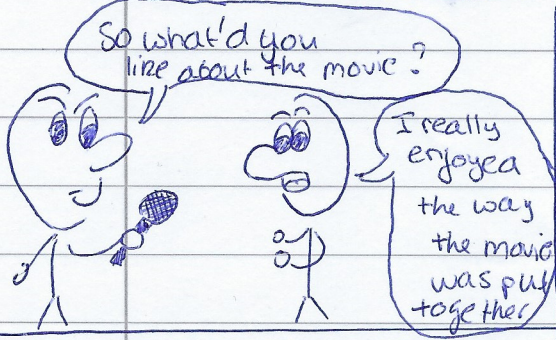 So what'd you
like about the movie?
I really
enjoyed
the way
the movie
was put
together